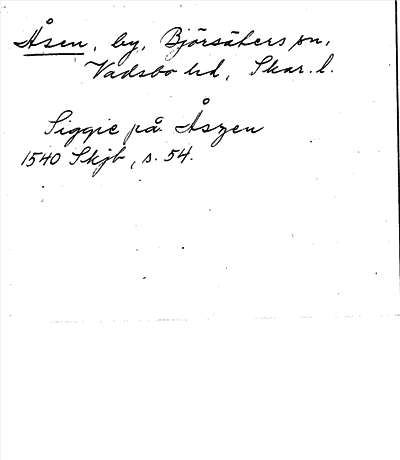 Åsen, by, Björsäters sn,
Vadsbo hd, Skar. l.
Siggie på Åszen
1540 Skjb, s. 54.